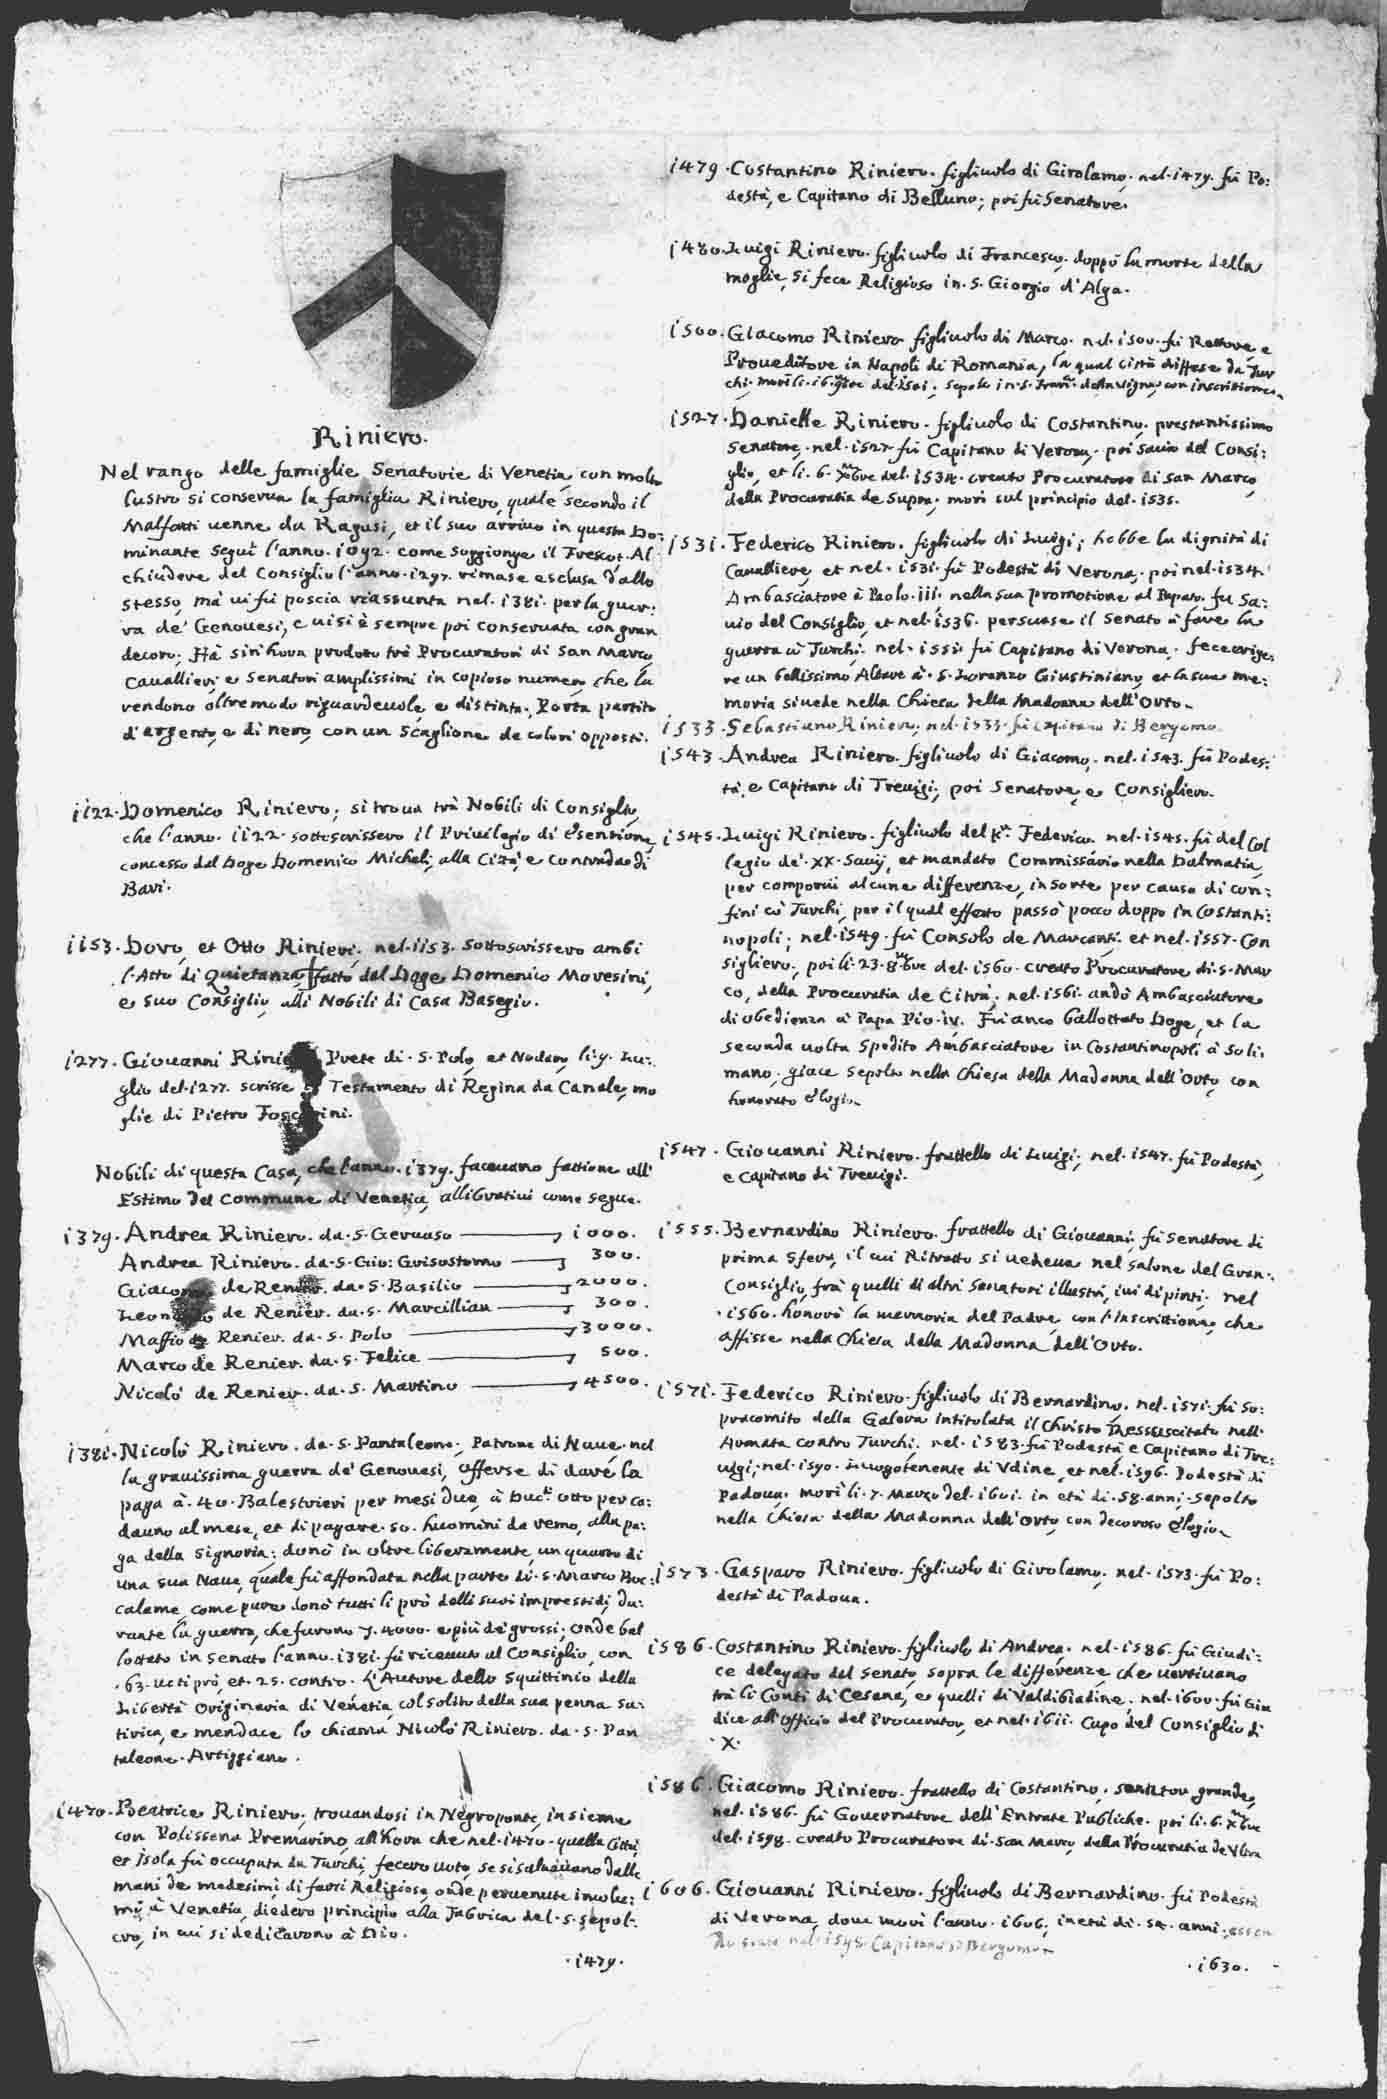 Riniero.
Nel rango delle famiglie Senatorie di Venetia, con molto
lustro si conserva la famiglia Riniero, quale secondo il
Malfatti uenne da Ragusi, et il suo arriuo in questa Do:
minante seguì l'anno. 1092. come soggionge il Frescot. Al
chiudere del Consiglio l'anno. 1297. rimase esclusa dallo
stesso, mà ui fù poscia riassunta nel. 1381. per la guer:
ra de' Genouesi, e uisi è sempre poi conseruata con gran
decoro; Hà sin'hora prodoto trè Procuratori di San Marco,
Cauallieri, e Senatori amplissimi in copioso numero, che la
rendono oltremodo riguardeuole, e distinta. Porta partito
d'argento, e di nero, con un Scaglione de colori opposti.
1122. Domenico Riniero; si troua trà Nobili di Consiglio,
che l'anno. 1122. sottoscrissero il Priuilegio di esentione,
concesso dal Doge Domenico Micheli, alla Cità, e contrada di
Bari.
1153. Doro, et Otto Rinieri, nel. 1153. sottoscrissero ambi
l'Atto di Quietanza, fatto dal Doge Domenico Moresini,
e suo Consiglio, alli Nobili di Casa Basegio.
1277. Giouanni Prete di. S. Polo, et Nodaro, li. 9. Lu:
glio del. 1277. scrisse Testamento di Regina da Canale, mo
glie di Pietro Foscarini.
Nobili di questa Casa, che l'anno. 1379. faceuano fattione all'
Estimo del Commune di Venetia, allibratiui come segue.
1379. Andrea Riniero. da. S. Geruaso 1000.
Andrea Riniero. da. S. Gio: Grisostomo 300.
Giacomo de Renier. da. S. Basilio 2000.
Leonardo de Renier. da. S. Marcillian 300.
Maffio de Renier. da. S. Polo 3000.
Marco de Renier. da. S. Felice 500.
Nicolò de Renier. da. S. Martino 4500.
1381. Nicolò Riniero. da. S. Pantaleone, Patrone di Naue, nel
la grauissima guerra de' Genouesi, offerse di dare la
paga à. 40. Balestrieri per mesi due, à Duc.ti otto per ca:
dauno al mese, et di pagare. 50. huomini da remo, alla pa:
ga della Signoria; donò in oltre liberamente, un quarto di
una sua Naue, quale fù affondata nella parte di. S. Marco Boc:
calame, come pure donò tutti li prò delli suoi imprestidi, du:
rante la guerra, che furono 4000. e più de grossi; onde bal
lottato in Senato l'anno. 1381. fù riceuuto al Consiglio, con
.63. uoti prò, et. 25. contro. L'Autore dello Squittinio della
Libertà Originaria di Venetia, col solito della sua penna sa:
tirica, e mendace lo chiama Nicolò Riniero. da. S. Pan
taleone. Artiggiano.
1470. Beatrice Riniero, trouandosi in Negroponte, insieme
con Polissena Premarino, all'hora che nel. 1470. quella Città,
et Isola fù occupata da Turchi, fecero uoto, se si saluauano dalle
mani de medesimi, di farsi Religiose, onde peruenute incolu:
mi à Venetia, diedero principio alla Fabrica del. S. Sepol:
cro, in cui si dedicarono à Dio.
.1479.
1479. Costantino Riniero. figliuolo di Girolamo, nel. 1479. fù Po:
destà, e Capitano di Belluno; poi fù Senatore.
1480. Luigi Riniero. figliuolo di Francesco, doppò la morte della
moglie, si fece Religioso in. S. Giorgio d'Alga.
1500. Giacomo Riniero figliuolo di Marco. nel. 1500. fù Rettore, e
Proueditore in Napoli di Romania, la qual città diffese da Tur
chi. morì li. 16. del. 1501. sepolto in. S. Fran.co della Vigna, con inscrittione.
1527. Danielle Riniero. figliuolo di Costantino, prestantissimo
Senatore, nel. 1527. fù Capitano di Verona, poi Sauio del Consi:
glio, et li. 6. Xmbre del. 1534. creato Procuratore di San Marco,
della Procuratia de Supra, morì sul principio del. 1535.
1531. Federico Riniero. figliuolo di Luigi; hebbe la dignità di
Caualliere, et nel. 1531. fù Podestà di Verona, poi nel. 1534.
Ambasciatore à Paolo. III. nella sua promotione al Papato. fu Sa:
uio del Consiglio, et nel. 1536. persuase il Senato à fare la
guerra cò Turchi; nel. 1551. fù Capitano di Verona, fece erige:
re un bellissimo Altare à. S. Lorenzo Giustiniano, et la sua me:
moria si uede nella Chiesa della Madonna dell'Orto.
1533. Sebastiano Riniero; nel. 1533. fù capitano di Bergamo.
1543. Andrea Riniero. figliuolo di Giacomo, nel. 1543. fù Podes:
tà, e Capitano di Treuigi; poi Senatore, e Consigliero.
1545. Luigi Riniero. figliuolo del K.r Federico, nel. 1545. fù del Col
legio de'. XX. Sauij, et mandato Commissario nella Dalmatia,
per comporui alcune differenze, insorte per causa di con:
fini cò Turchi, per il qual effetto passò pocco doppo in Costanti:
nopoli; nel. 1549. fù Consolo de Marcanti, et nel. 1557. Con
sigliero, poi li. 23. 8mbre del. 1560. creato Procuratore di. S. Mar
co, della Procuratia de Citrà; nel. 1561. andò Ambasciatore
di obedienza à Papa Pio. IV. Fù anco ballottato Doge, et la
seconda uolta spedito Ambasciatore in Costantinopoli à Soli:
mano. giace sepolto nella Chiesa della Madonna dell'Orto, con
honorato elogio.
1547. Giouanni Riniero. frattello di Luigi, nel. 1547. fù Podestà,
e Capitano di Treuigi.
1555. Bernardino Riniero. frattello di Giouanni, fù Senatore di
prima sfera, il cui Ritratto si uedeua nel Salone del Gran:
Consiglio, frà quelli di altri Senatori illustri, iui dipinti. nel
.1560. honorò la memoria del Padre, con l'Inscrittione, che
affisse nella Chiesa della Madonna dell'Orto.
1571. Federico Riniero. figliuolo di Bernardino, nel. 1571. fù So:
pracomito della Galera intitolata il Christo Resssuscitato nell'
Armata contro Turchi; nel. 1583. fù Podestà, e Capitano di Tre:
uigi; nel. 1590. Luogotenente di Vdine, et nel. 1596. Podestà di
Padoua, morì li. 7. Marzo del. 1601. in età di. 58. anni, sepolto
nella Chiesa della Madonna dell'Orto, con decoroso elogio.
1573. Gasparo Riniero. figliuolo di Girolamo, nel. 1573. fù Po:
destà di Padoua.
1586. Costantino Riniero. figliuolo di Andrea, nel. 1586. fù Giudi:
ce delegato dal Senato, sopra le differenze, che uertiuano
trà li Conti di Cesana, e quelli di Valdibiadine; nel. 1600. fù Giu
dice all'Officio del Procurator, et nel. 1611. Capo del Consiglio di
.X.
1586. Giacomo Riniero. frattello di Costantino, senator grande,
nel. 1586. fù Gouernatore dell'Entrate Publiche. poi li. 6. Xmbre
del. 1598. creato Procuratore di San Marco, della Procuratia de Vltra
1606. Giouanni Riniero. figliuolo di Bernardino. fù Podestà
di Verona, doue morì l'anno. 1606. in età di. 52. anni, essen
do stato nel. 1598. Capitano di Bergamo.
.1630.